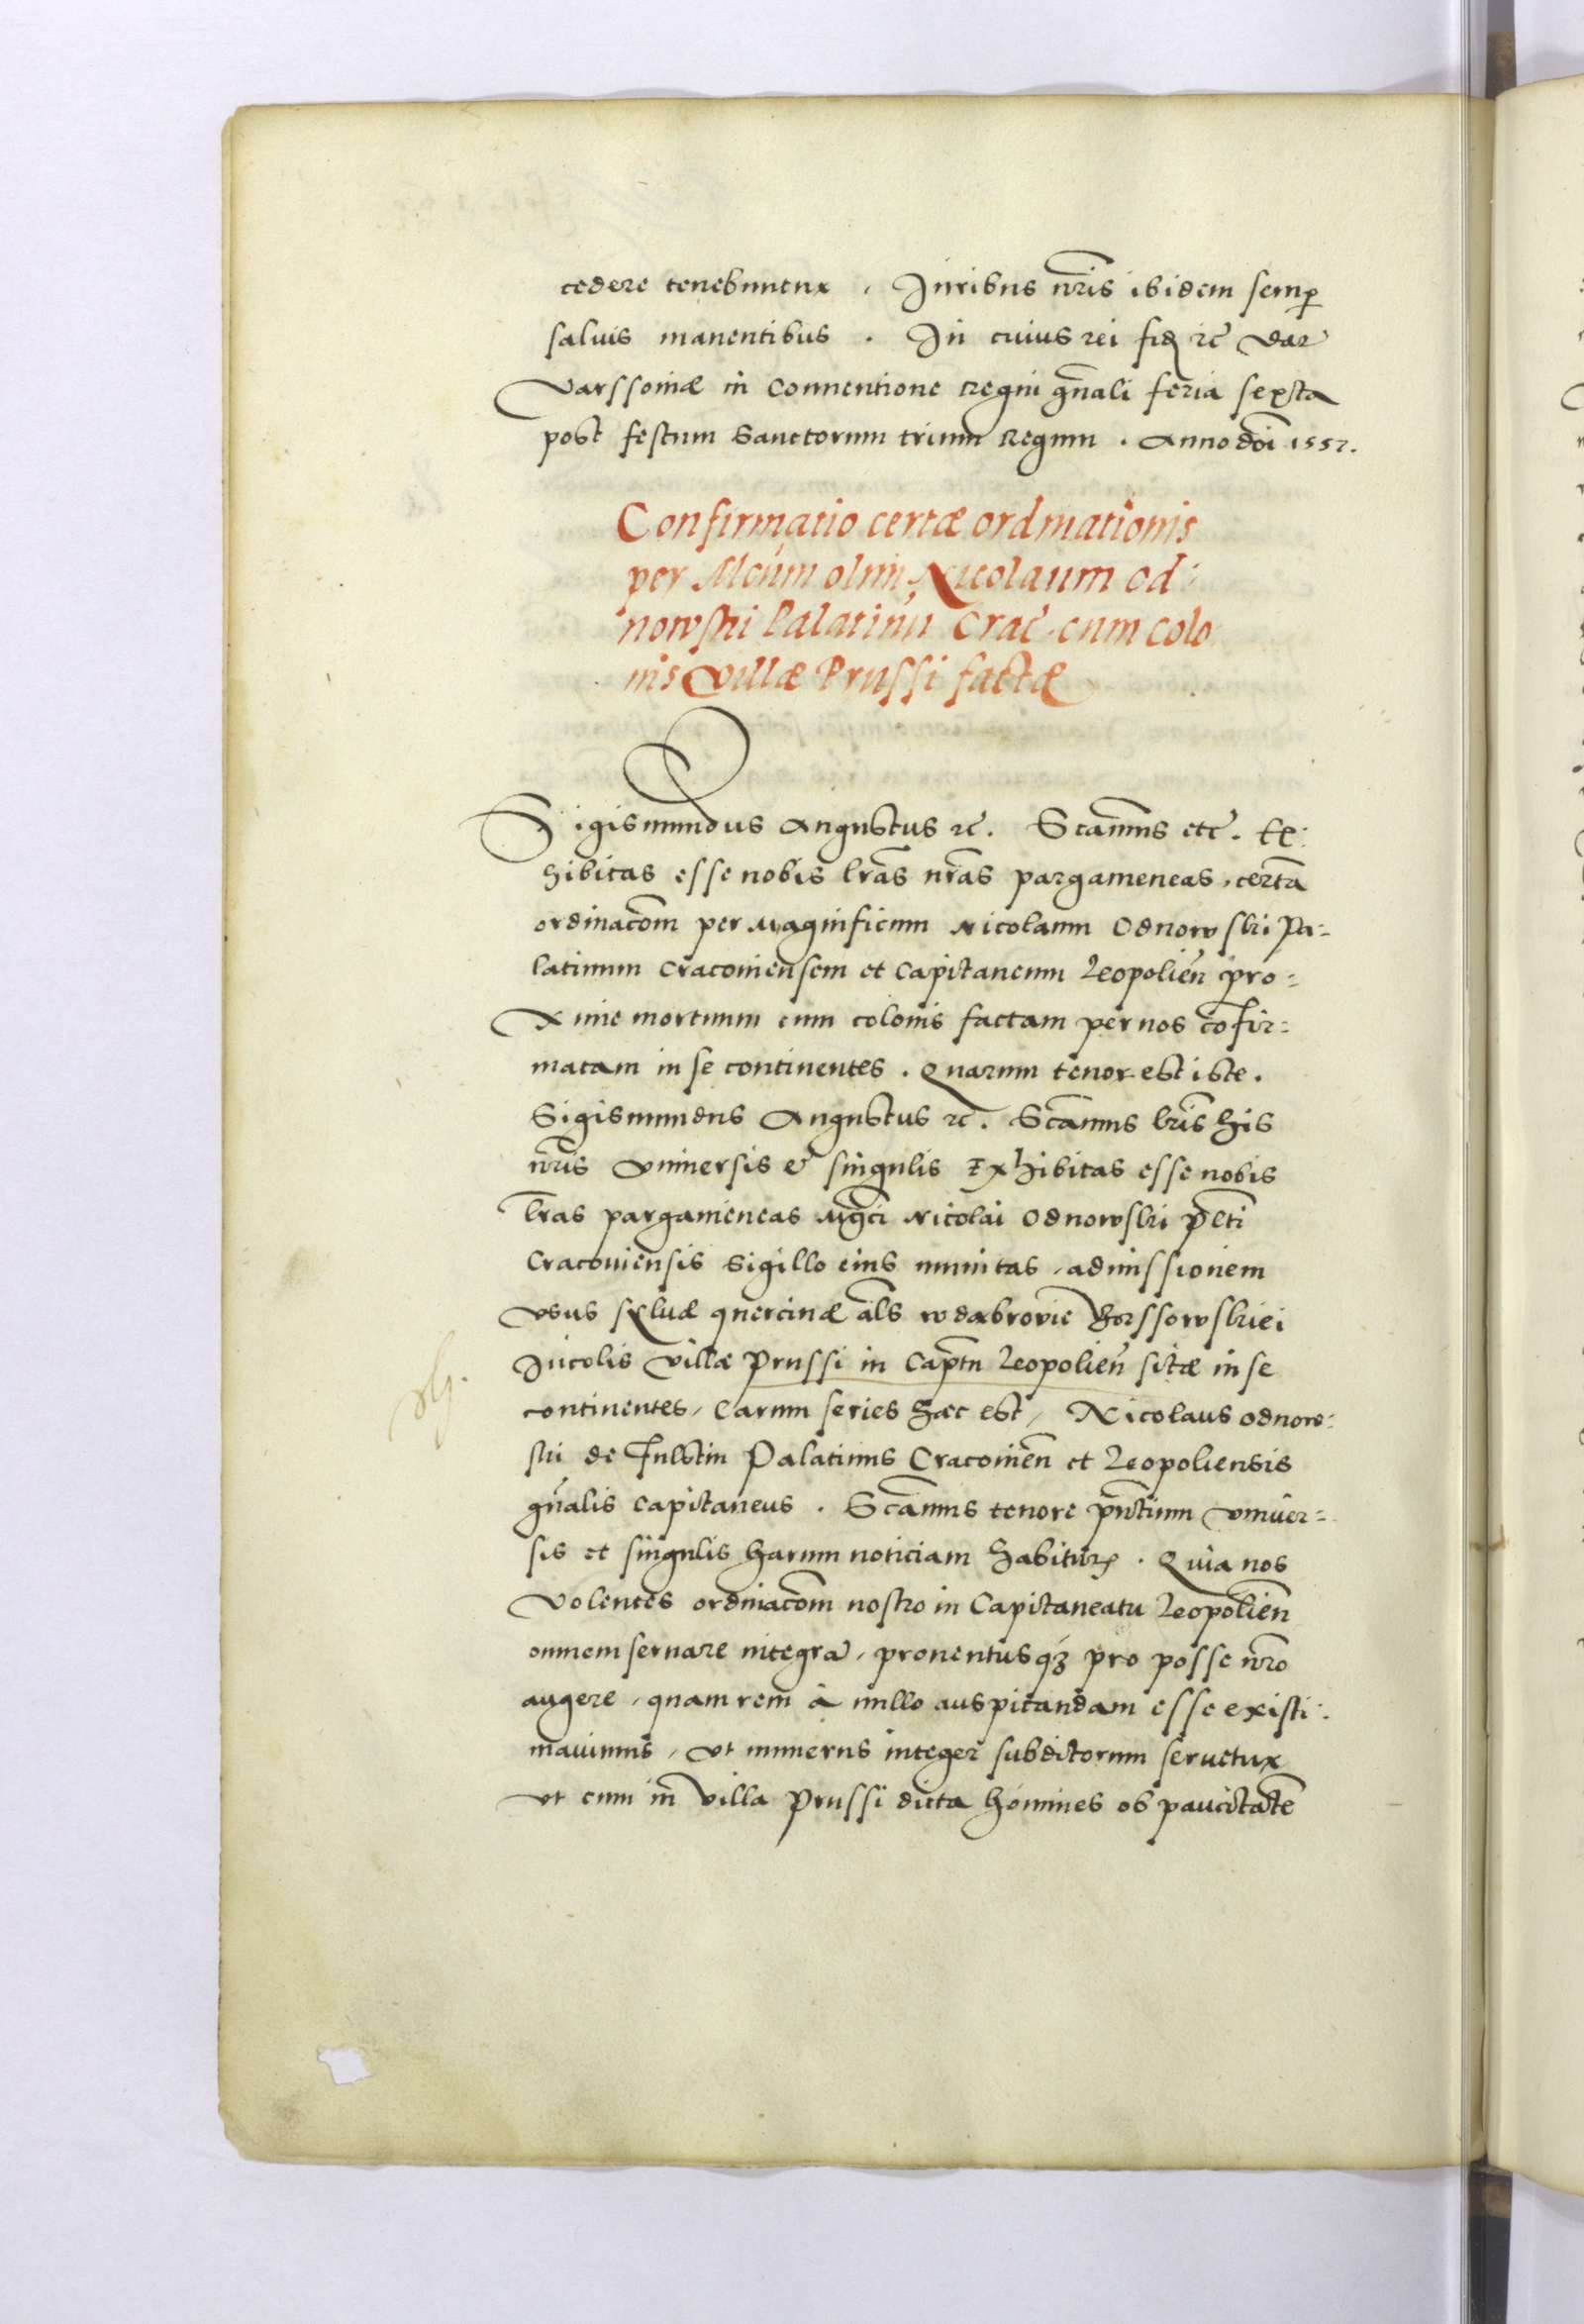 cedere tenebuntur, Iuribus nr̃is ibidem semꝑ
saluis manentibus. In cuius rei fidẽ ꝛc̃ Dat̃
Varssouiæ in Conuentione Regni gñali feria sexta
post festum Sanctorum trium Regum. Anno dñi 1557.
Confirmatio certæ ordinationis
per Mcũm olim Nicolaum Od:
nowski Palatinũ Crac̃. cum colo
nis villæ Prussi factæ
Sigismundus Augustus ꝛc̃. Sc̃amus etc̃. Ex:
hibitas esse nobis lr̃as nr̃as pargameneas, certã
ordinacõm per Magnificum Nicolaum Odnowski Pa=
latinum Cracouiensem et Capitaneum Leopolien̄ pro=
xime mortuum cum colonis factam per nos cõfir=
matam in se continentes. Quarum tenor est iste.
Sigismundus Augustus ꝛc̃. Sc̃amus lr̃is his
nr̃is vniuersis et singulis Exhibitas esse nobis
lr̃as pargameneas Mg̃ci Nicolai Odnowski Pltĩ
Cracouiensis Sigillo eius munitas, admissionem
vsus syluæ quercinæ al̃s w dabrowie Borssowskiei
Incolis villæ Prussi in Captñ Leopolien̄ sitæ in se
continentes, Earum series hæc est, Nicolaus Odnow:
ski de Fulstin Palatinus Cracouien̄ et Leopoliensis
gñalis Capitaneus. Sc̃amus tenore pñtium vniuer=
sis et singulis harum noticiam habiturꝭ. Quia nos
Volentes ordinacõm nostro in Capitaneatu Leopolien̄
omnem seruare integrã, prouentusqꝫ pro posse nr̃o
augere, quam rem à nullo auspicandam esse existi:
mauimus, vt numerus integer subditorum seruetur
vt cum in Villa Prussi dicta homines ob paucitatẽ